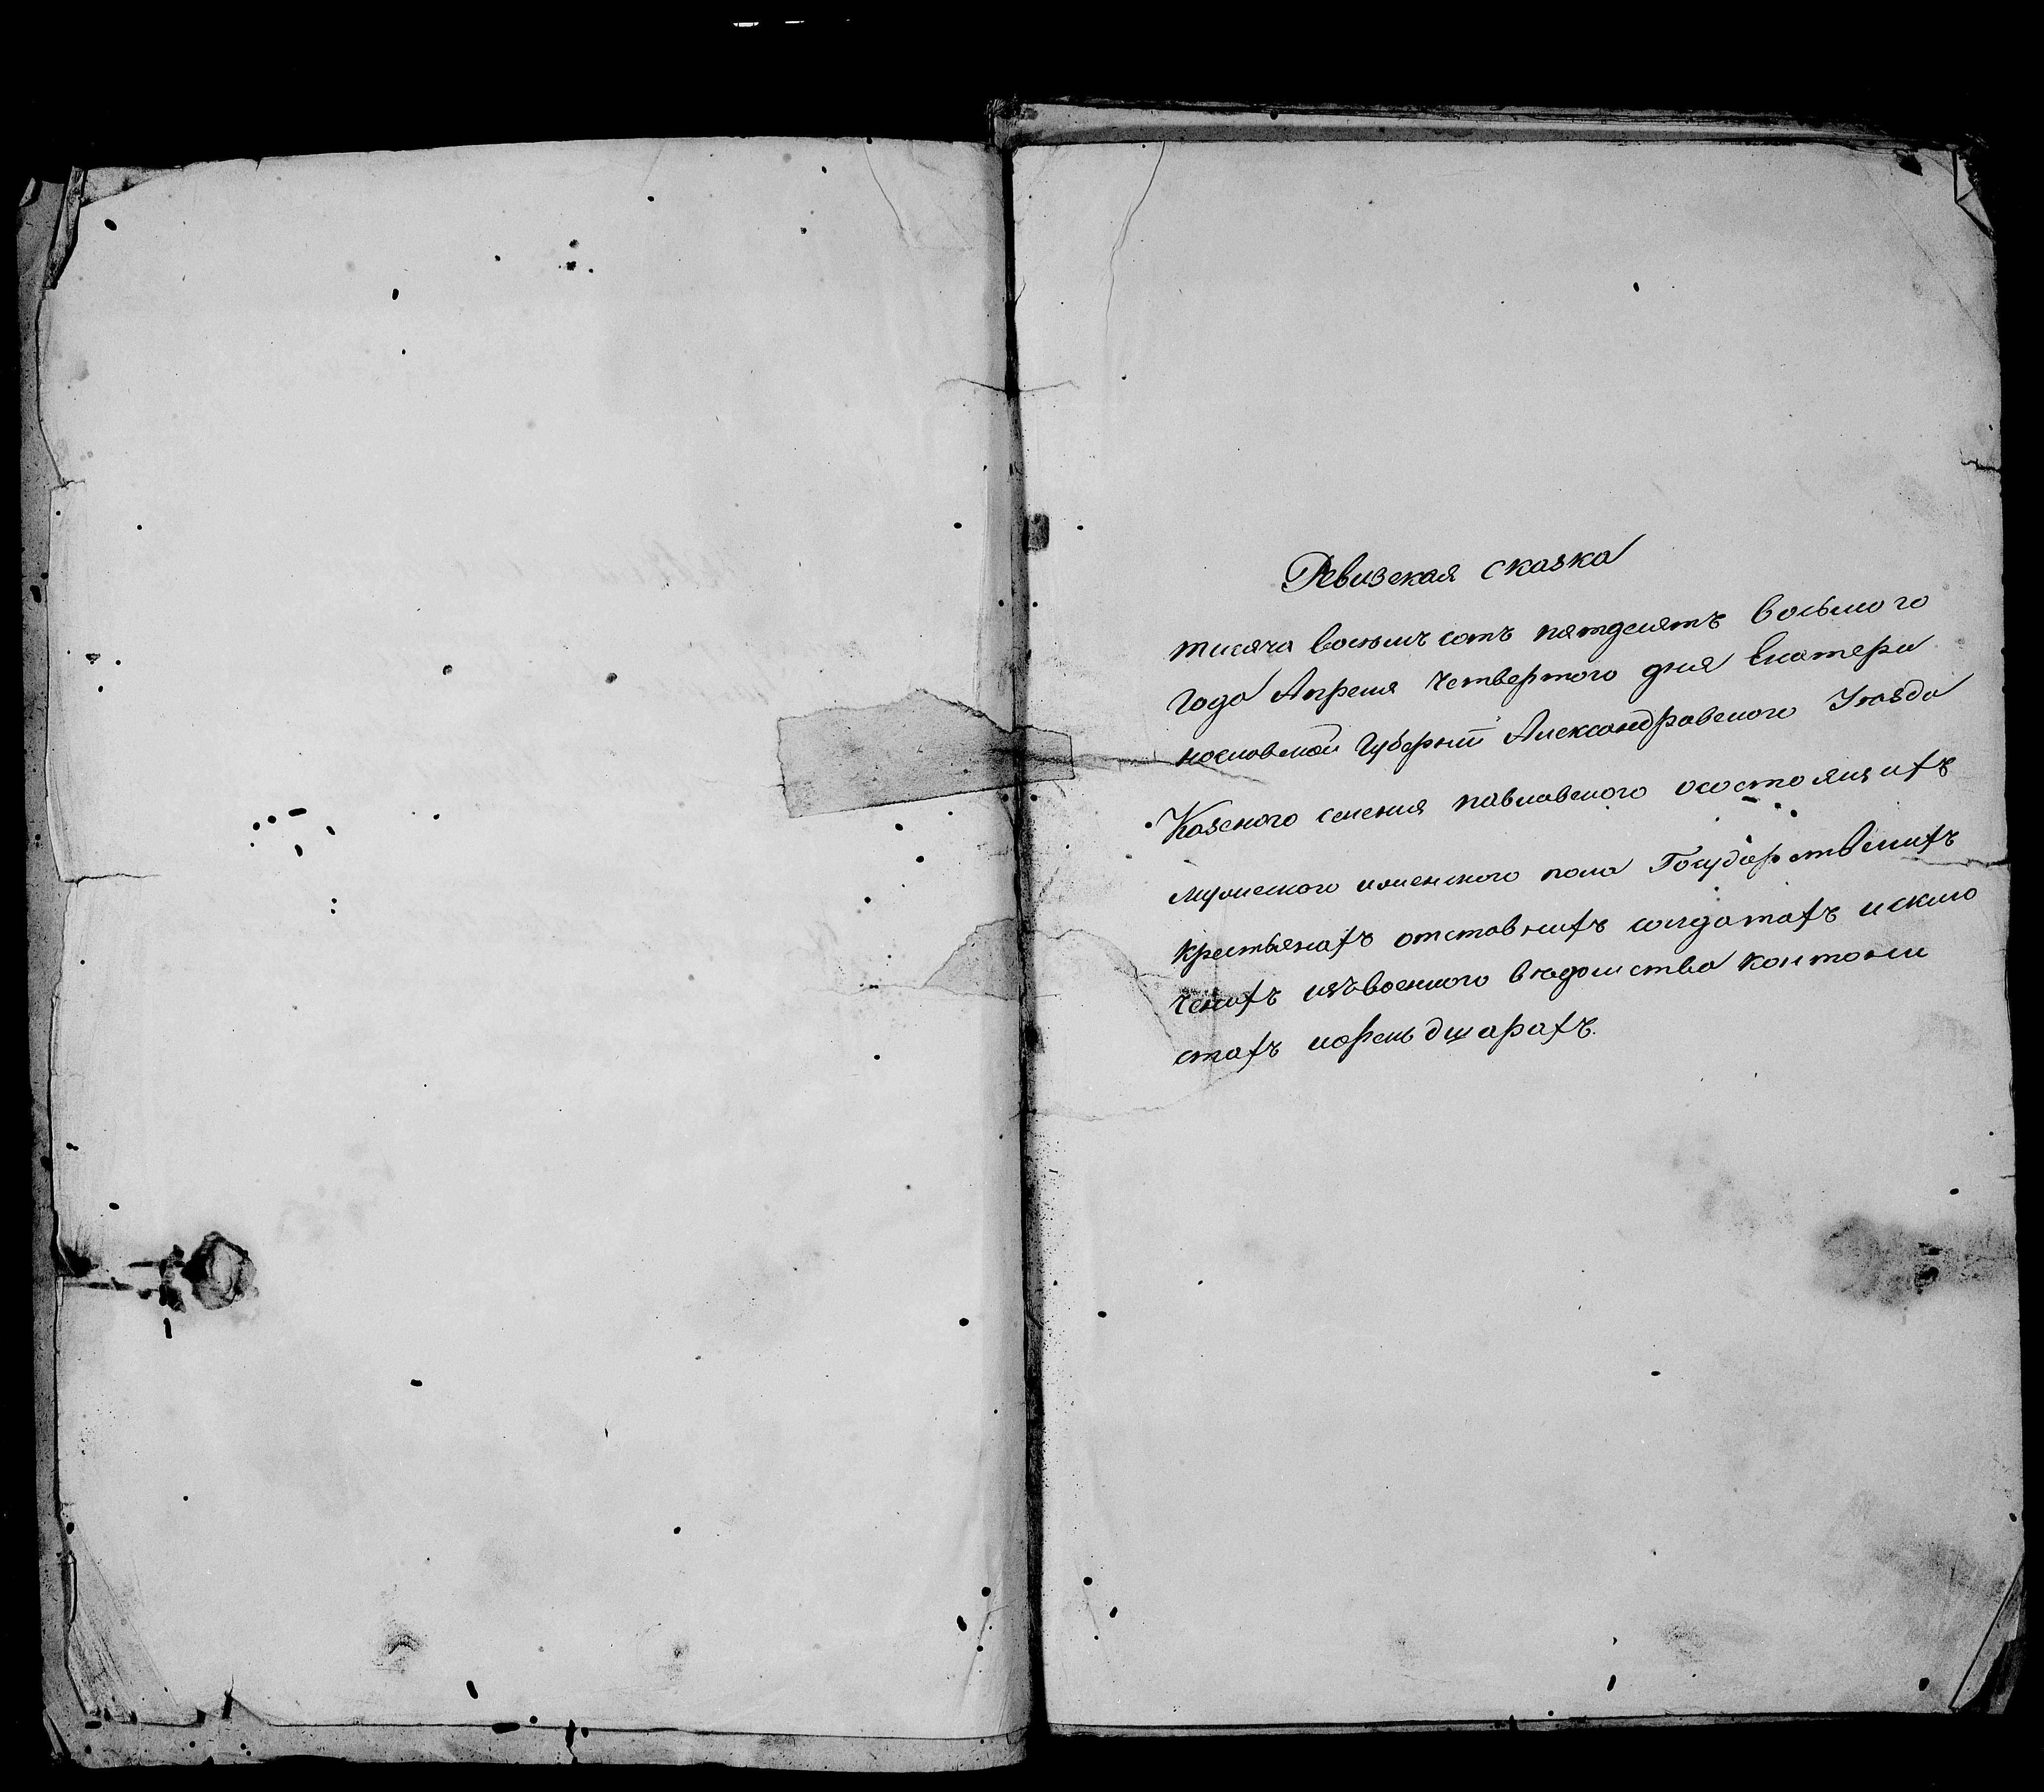 Ревизская сказка
тисяча восъмъ сотъ пятдесятъ восьмого
Года Апреля Четвертого дня Екатери
нославской Губернии Александравского Уѣзда
Казеного селения павлавского осостоящихъ
мужеского иженского пола Государственихъ
крестьянахъ отставнихъ солдатахъ исклю
ченихъ изъвоенного вѣдомства контони
стахъ иорендшарахъ.